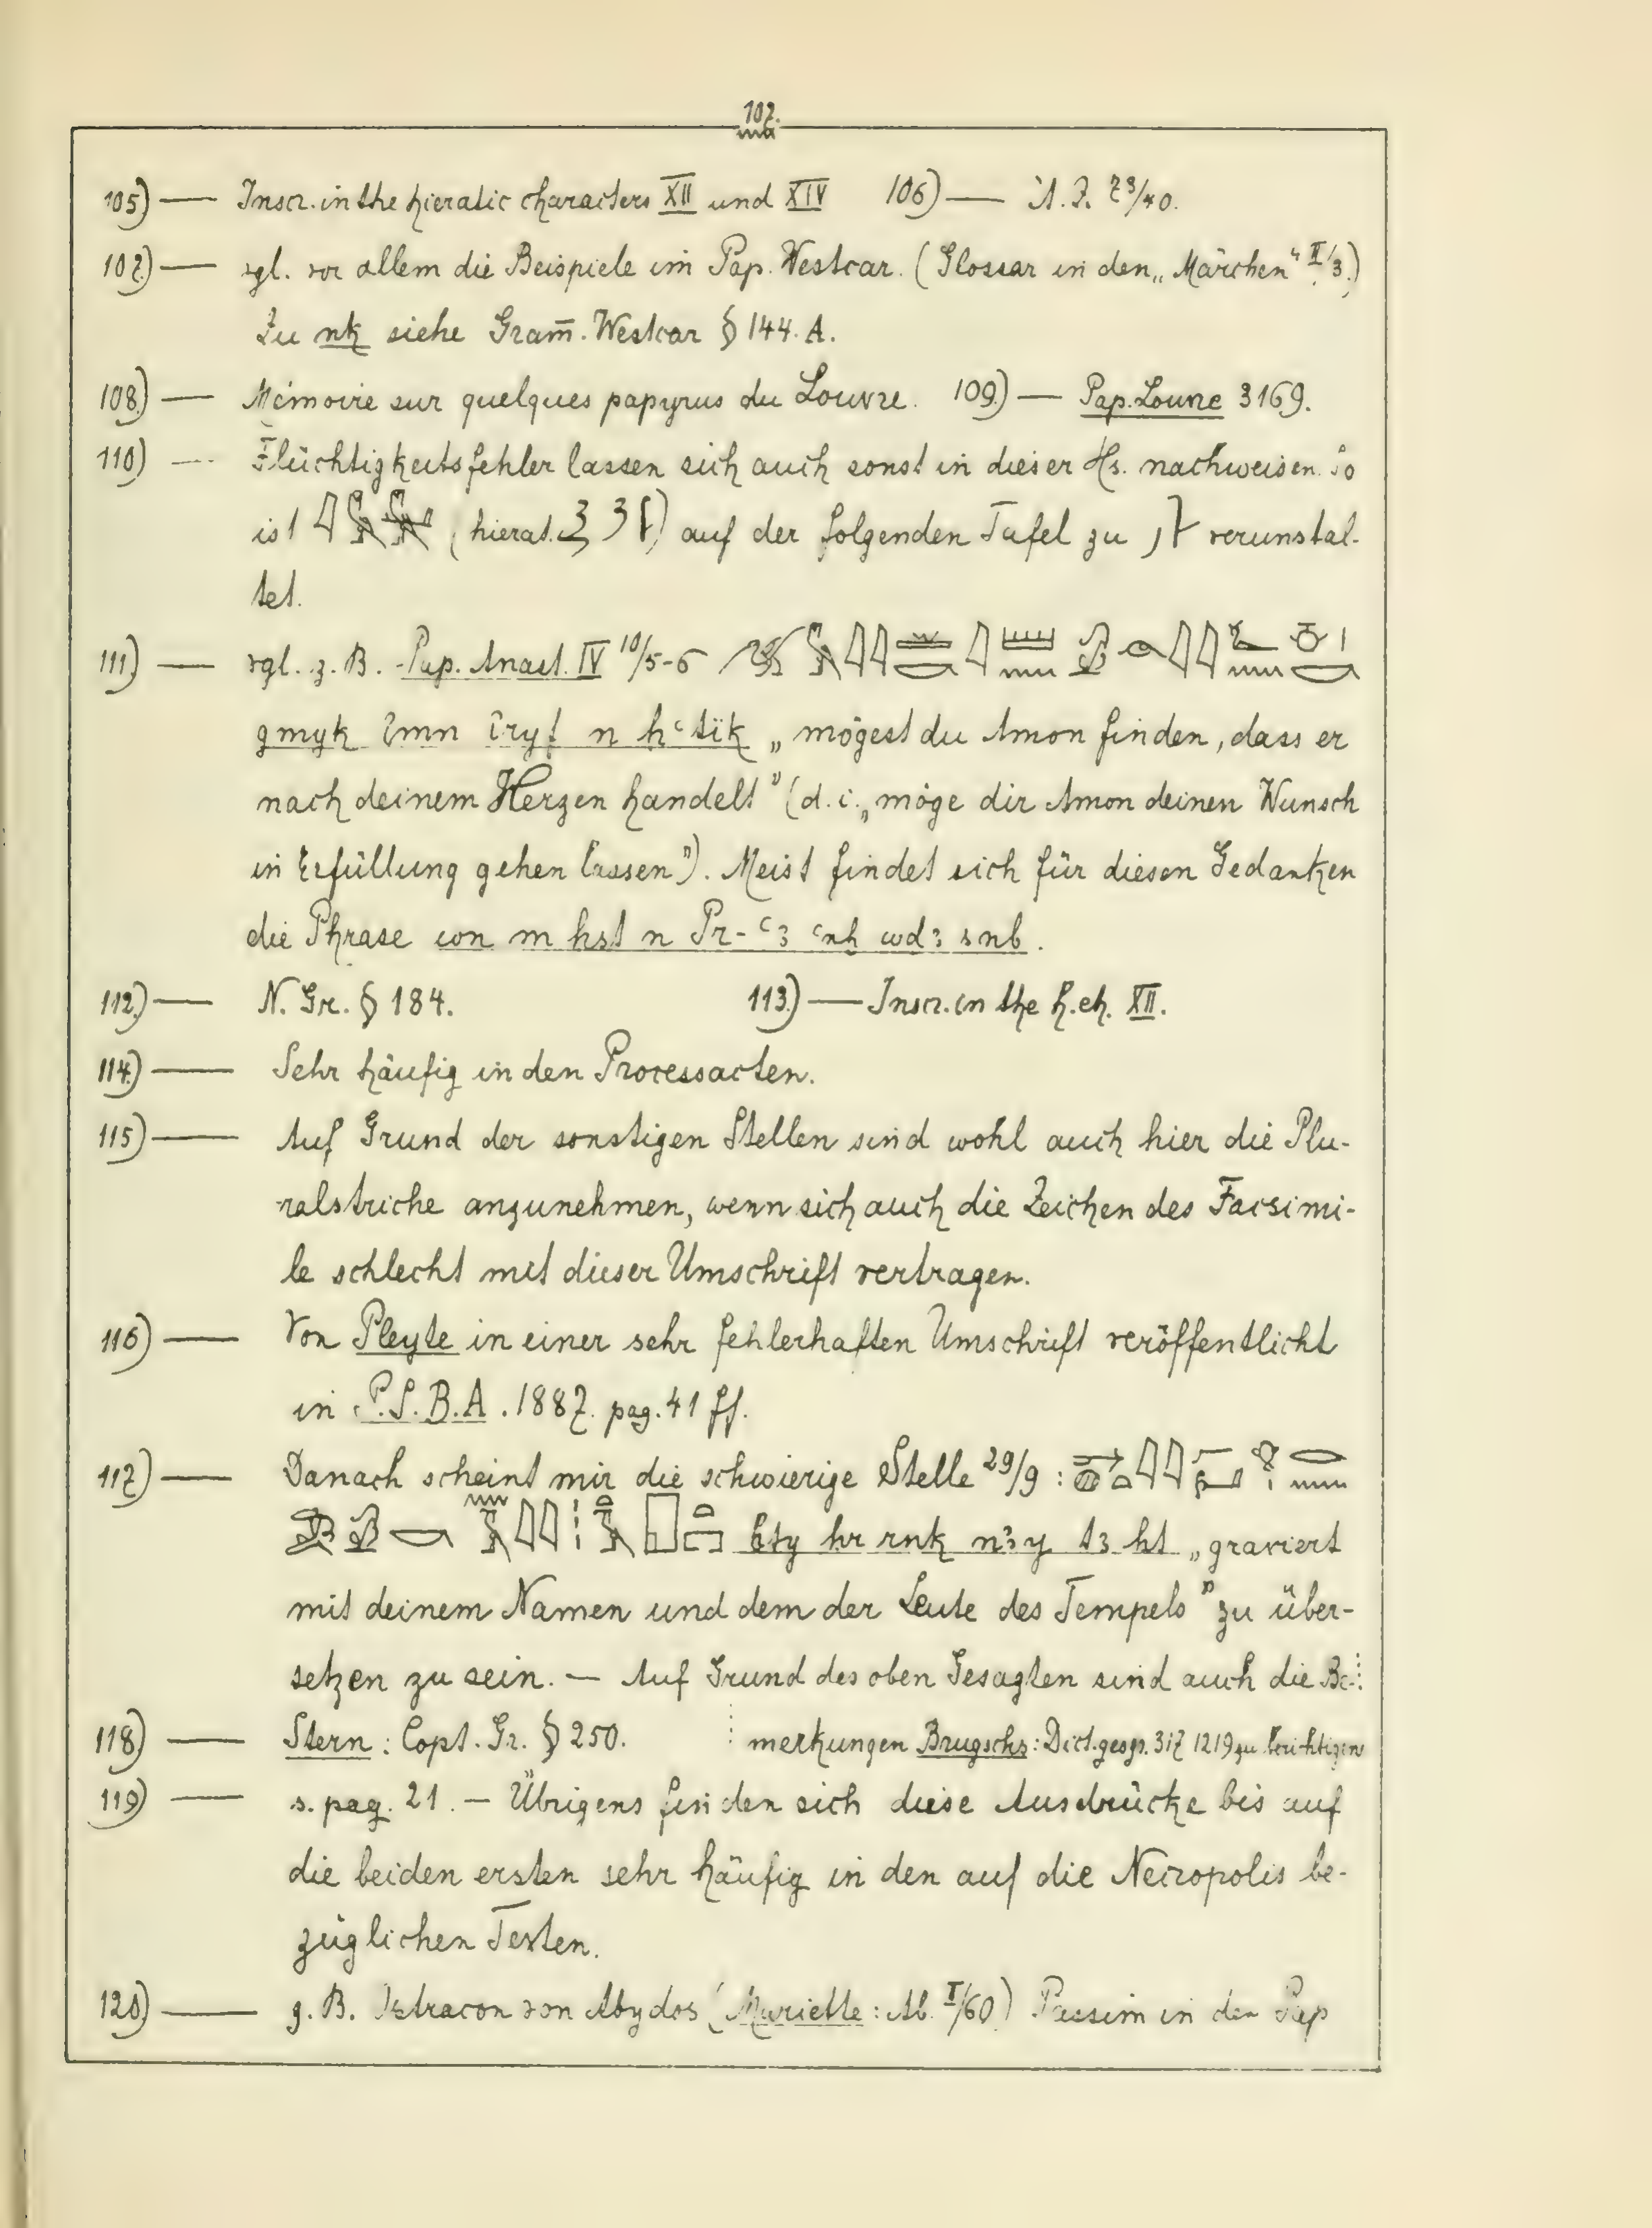 107.
105) — Inscr. in the hieratic characters XII und XIV 106) — Ä. Z. 79/40.
107) — vgl. vor allem die Beispiele im Pap. Westcar. (Glossar in den „Märchen“ II/3.)
Zu nk siehe Gram̄. Westcar § 144. A.
108) — Mémoire sur quelques papyrus du Louvre. 109) — Pap. Louvre 3169.
110) — Flüchtigkeitsfehler lassen sich auch sonst in dieser Hs. nachweisen. So
ist (hierat. ) auf der folgenden Tafel zu verunstal-
tet.
111) — vgl. z. B. Pap. Anast. IV 10/5-6
gmyk ꜣmn ꞽryf n hꜥtïk „mögest du Amon finden, dass er
nach deinem Herzen handelt“ (d. i. „möge dir Amon deinen Wunsch
in Erfüllung gehen lassen“). Meist findet sich für diesen Gedanken
die Phrase wn m hst n Pr-ꜥꜣ ꜥnh wdꜣ snb.
112) — N. Gr. § 184. 113) — Inscr. in the h. ch. XII.
114) — Sehr häufig in den Processacten.
115) — Auf Grund der sonstigen Stellen sind wohl auch hier die Plu-
ralstriche anzunehmen, wenn sich auch die Zeichen des Facsimi-
le schlecht mit dieser Umschrift vertragen.
116) — Von Pleyte in einer sehr fehlerhaften Umschrift veröffentlicht
in P.S.B.A. 1887. pag. 41 ff.
117) — Danach scheint mir die schwierige Stelle 29/9 :
hty hr rnk nꜣy tꜣ ht „graviert
mit deinem Namen und dem der Leute des Tempels“ zu über-
setzen zu sein. — Auf Grund des oben Gesagten sind auch die Be-
118) — Stern: Copt. Gr. § 250. merkungen Brugschs: Dict. geogr. 317 1219 zu berichtigen
119) — s. pag. 21. — Übrigens finden sich diese Ausdrücke bis auf
die beiden ersten sehr häufig in den auf die Necropolis be-
züglichen Texten.
120) — z. B. Ostracon von Abydos (Mariette: Ab. I/60) Passim in den Pap